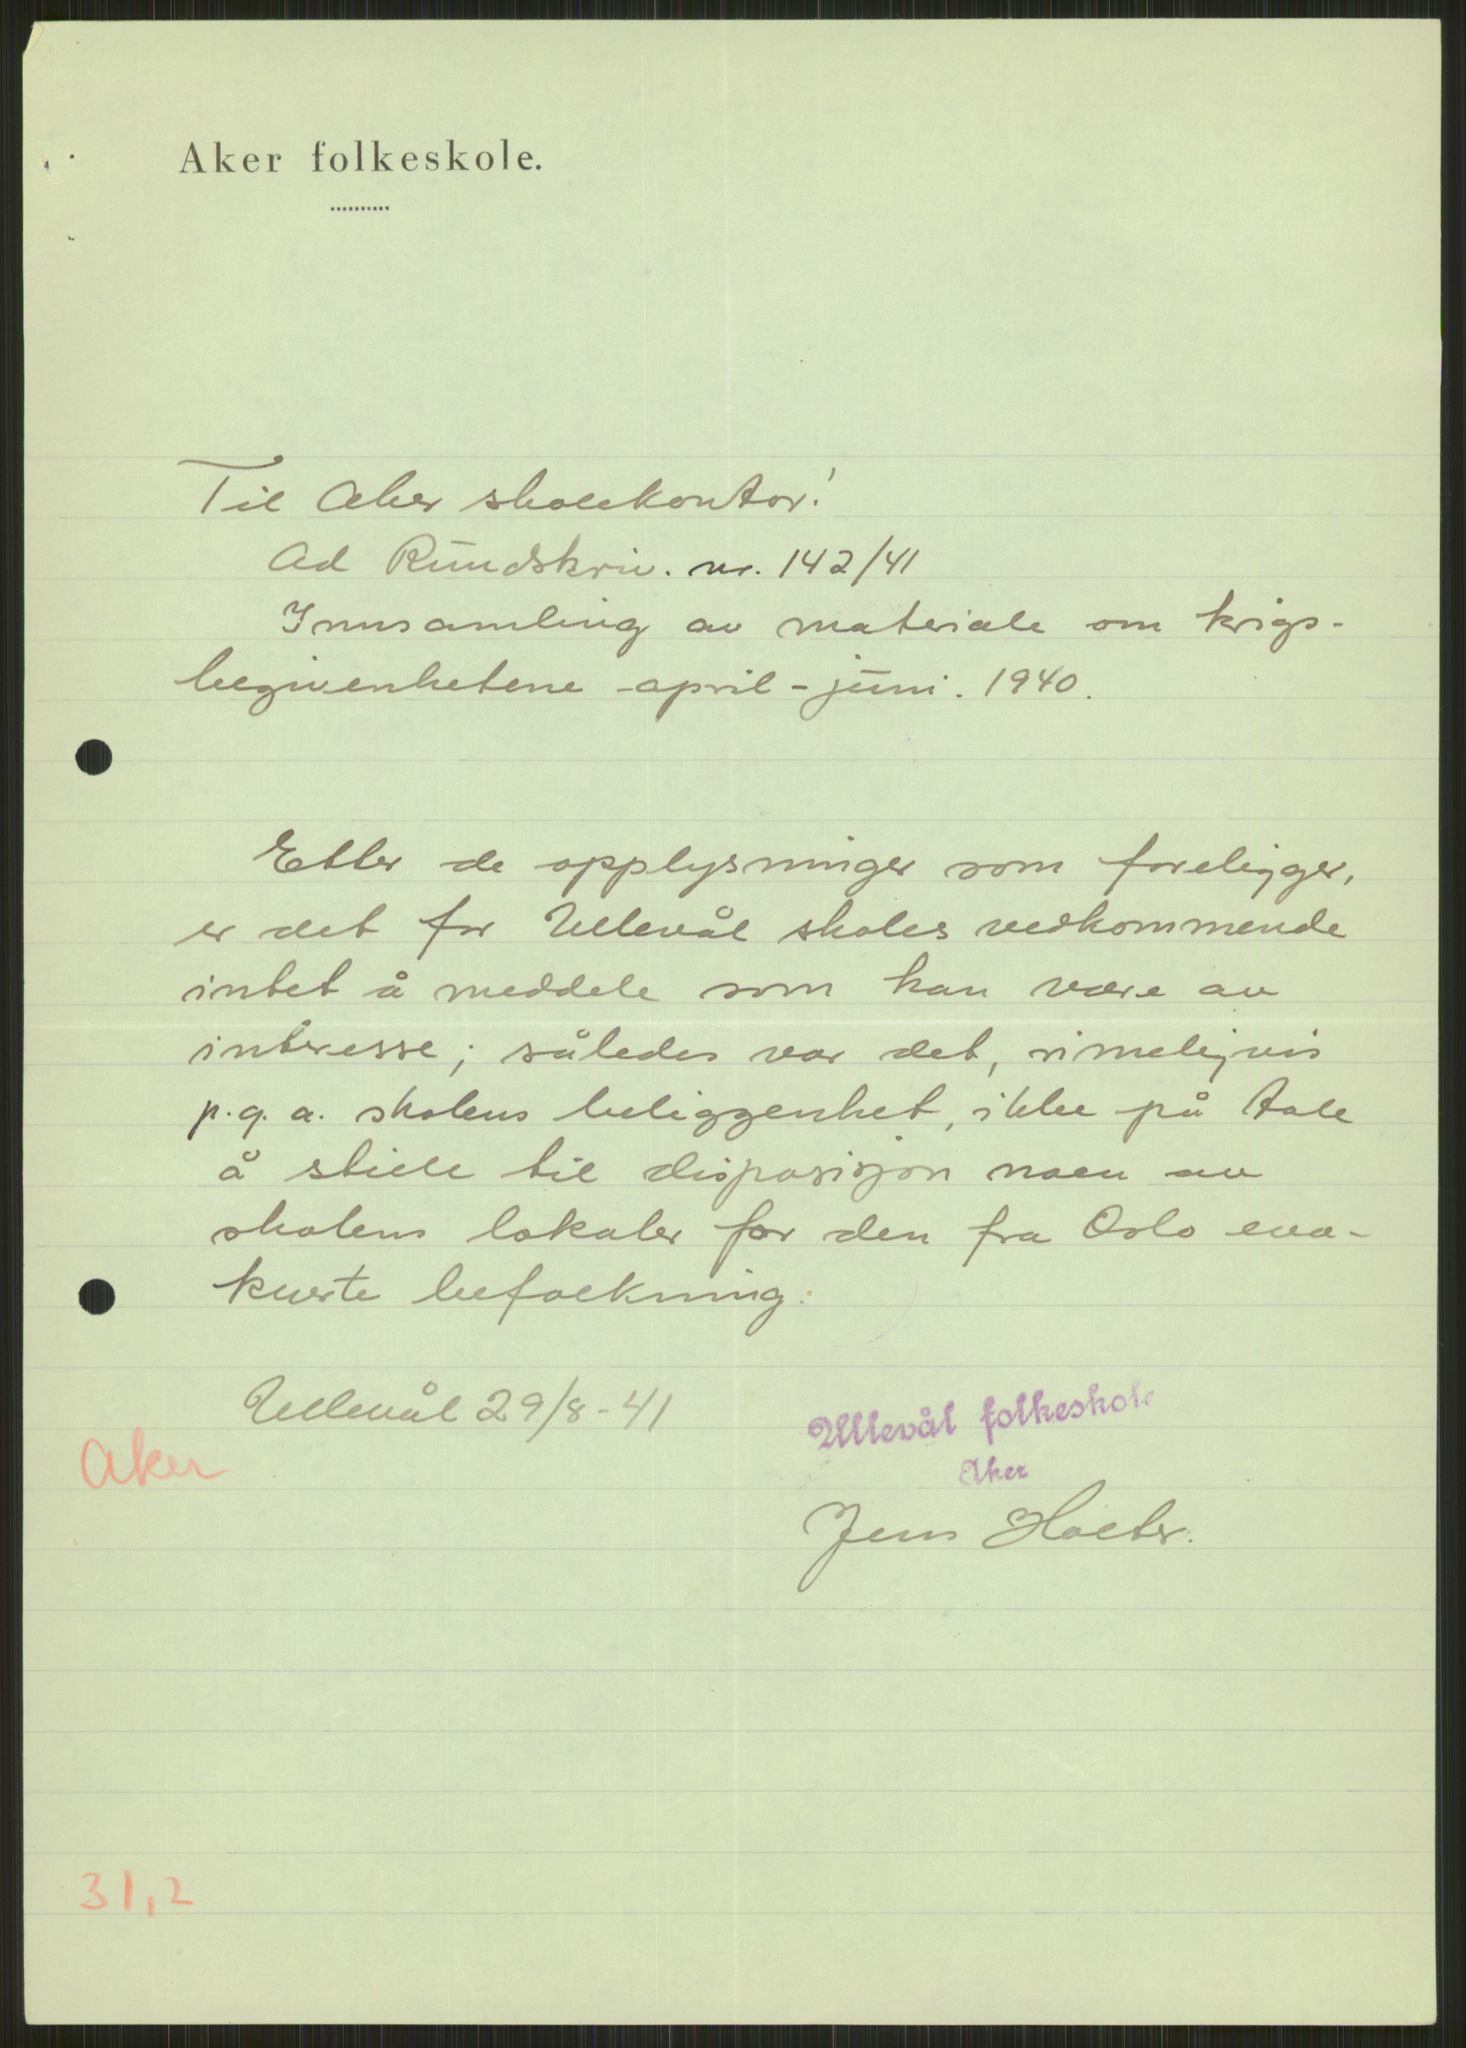 Aker folkeskole.
Til Aker skolekontor!
Ad Rundskriv. nr. 142/41
Innsamling av materiale om krigs-
begivenhetene april - juni. 1940.
Etter de opplysninger som foreligger,
er det for Ullevål skoles vedkommende
intet å meddele som kan være av
interesse; således var det, rimeligvis
p.g.a. skolens beliggenhet, ikke på tale
å stille til disposisjon noen av
skolens lokaler for den fra Oslo eva-
kuerte befolkning.
Ullevål 29/8-41
Ullevål folkeskole
Aker
Aker
Jens Holter.
31,2